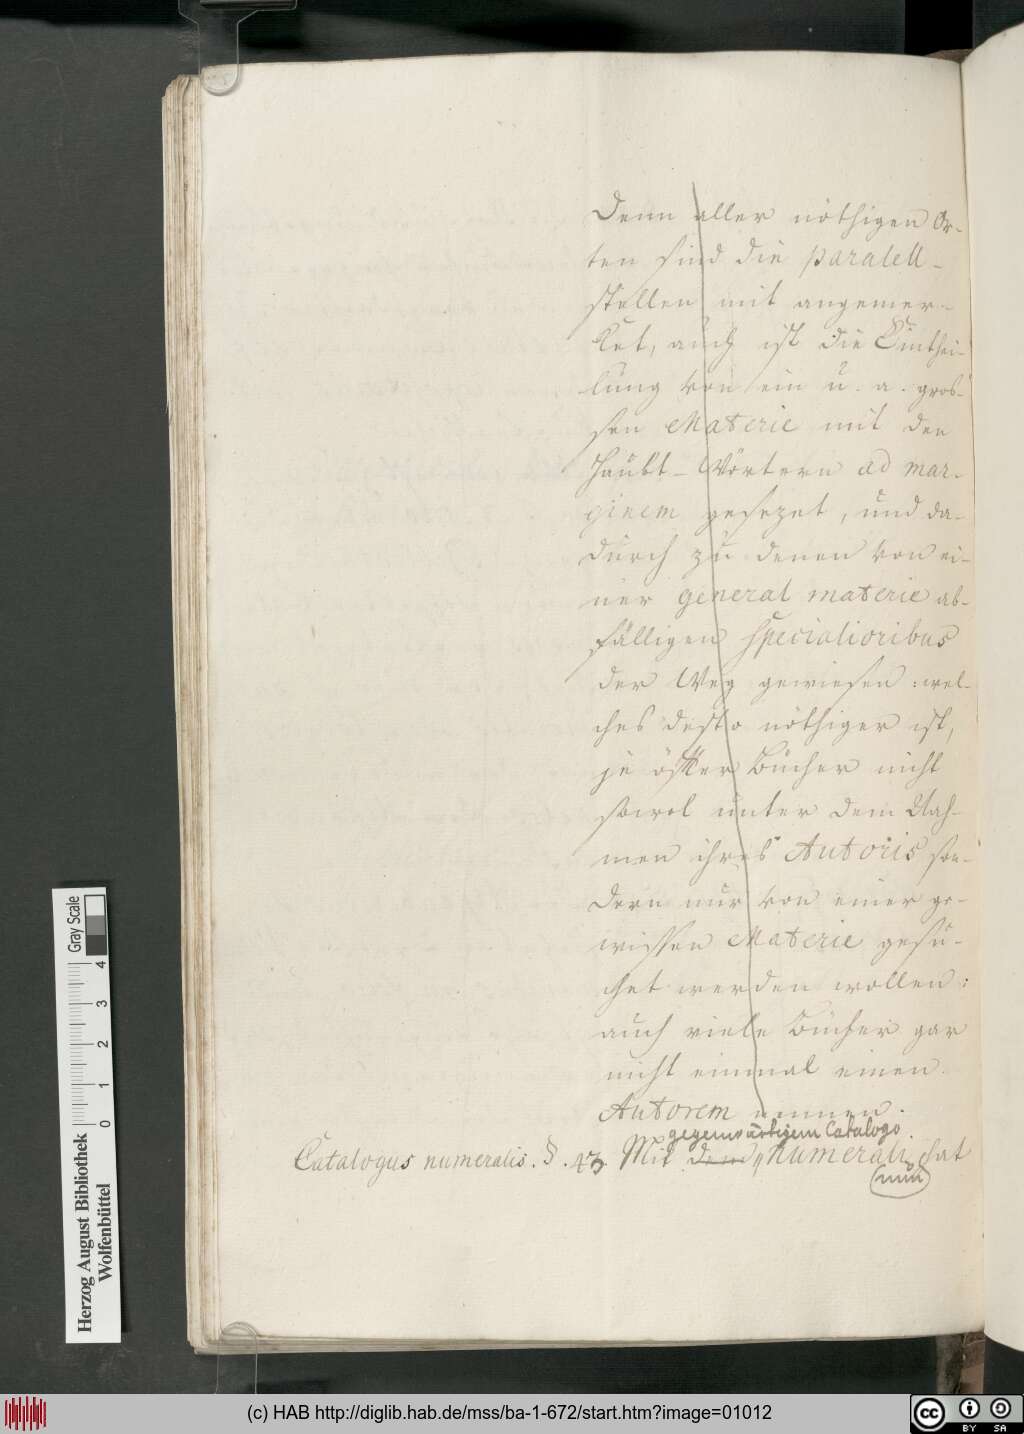 Denn aller nöthigen Or-
ten sind die paralell-
stellen mit angemer-
ket, auch ist die Einthei-
lung von ein u. a. gros-
sen Materie mit den
Haubt-Wörtern ad mar-
ginem gesezet, und da-
durch zu denen von ei-
ner general materie ab-
fälligen specialioribus
der Weg gewiesen: wel-
ches desto nöthiger ist,
je öffter Bücher nicht
sowol unter dem Nah-
men ihres Autoris son-
dern nur von einer ge-
wissen Materie gesu-
chet werden wollen:
auch viele Bücher gar
nicht einmal einen
Autorem nennen.
gegenwärtigem Catalogo
Catalogus numeralis. §. 43. Mit dem numerali hat
nun
Herzog August Bibliothek
Wolfenbüttel
0 1 2 3 4
Gray Scale
(c) HAB http://diglib.hab.de/mss/ba-1-672/start.htm?image=01012
cc BY SA